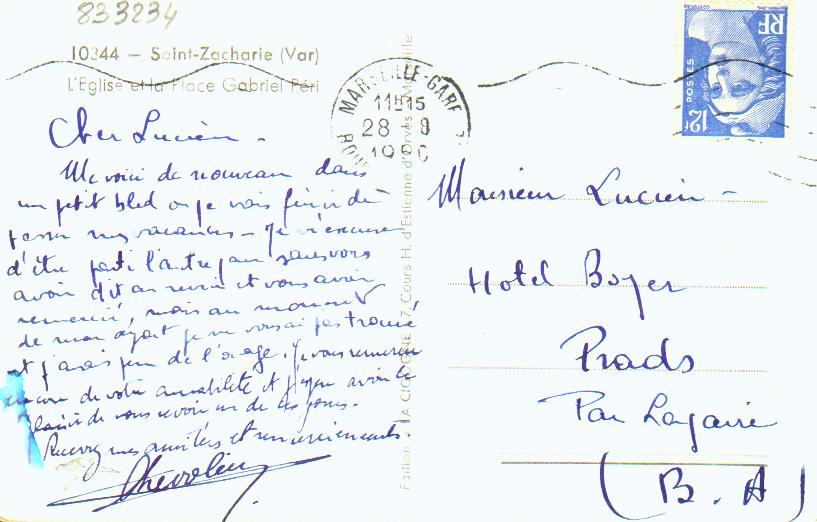 833234
10344 — Saint-Zacharie (Var)
L'Eglise et la Place Gabriel Péri
Cher Lucien -
Me voici de nouveau dans
un petit bled ou je vais finir de
passer mes vacances - Je m'excuse
d'être parti l'autre jour sans vous
avoir dit au revoir et vous avoir
remercié, mais au moment
de mon départ je ne vous ai pas trouvé
et j'avais peur de l'orage. Je vous remercie
encore de votre amabilité et j'espère avoir le
plaisir de vous revoir un de ces jours.
Recevez mes amitiés et remerciements.
MARSEILLE-GARE
11H15
28 - 8
19 0
BOU
Edition "LA CIGOGNE" 17, Cours H. d'Estienne d'Orves - Marseille
RF
POSTES
12F
Monsieur Lucien -
Hotel Boyer
Prads
Par
(B. A)